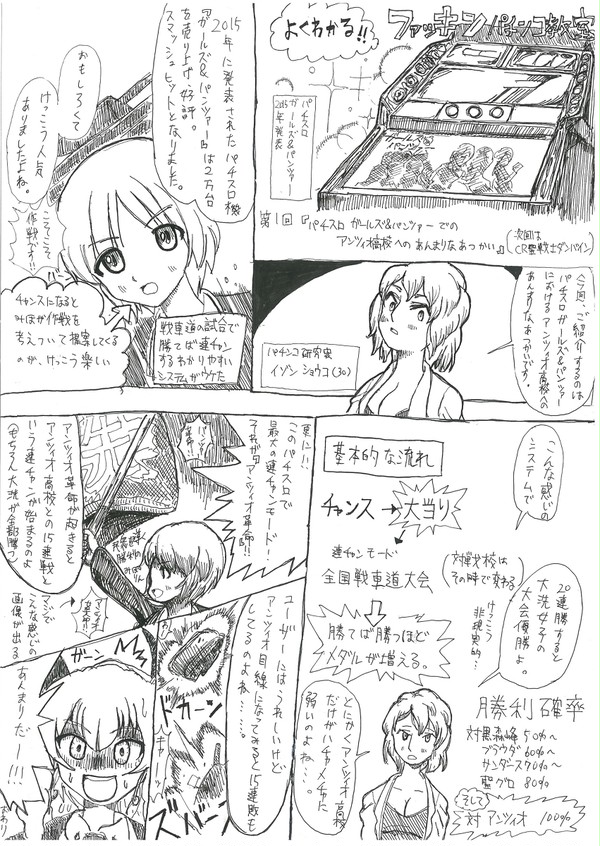 ファッキンパチンコ教室
よくわかる!!
パチスロ
ガールズ&パンツァー
2015年発表
ガールズ&
パンツァー
第1回『パチスロ ガールズ&パンツァーでの
アンツィオ高校へのあんまりなあつかい』
(次回は
CR聖戦士ダンバイン)
2015
年に発表されたパチスロ機
『ガールズ&パンツァー』は2万台
を売り上げ好評。
スマッシュヒットとなりました。
おもしろくて
けっこう人気
ありましたよね。
こそこそ
作戦です!!
チャンスになると
みほが作戦を
考えついて提案してくる
のが、けっこう楽しい
戦車道の試合で
勝てば連チャン
するわかりやすい
システムがウケた
今回、ご紹介するのは
パチスロガールズ&パンツァー
におけるアンツィオ高校への
あんまりなあつかいです。
パチンコ研究家
イソン ショウコ(30)
こんな感じの
システムで
基本的な流れ
チャンス→大当り
連チャンモード
全国戦車道大会
(対戦校は
その時で変わる)
勝てば勝つほど
メダルが増える。
20連勝すると
大洗女子の
大会優勝よ。
けっこう
非現実的…
勝利確率
対黒森峰 50%~
プラウダ 60%~
サンダース70%~
聖グロ 80%
そして
対アンツィオ 100%
とにかくアンツィオ高校
だけがハチャメチャに
弱いのよね…
更に!!
このパチスロで
最大の連チャンモード!
それがアンツィオ革命!!
アンツィオ革命が起きると
アンツィオ高校との15連戦と
いう連チャンが始まるのよ
(もちろん大洗が全部勝つ)
マジで
こんな感じの
画像が出る
ユーザーにはうれしいけど
アンツィオ目線になってみると15連敗も
してるのよね……。
ドカーン
ズバーン
ガーン
あんまりだー!!!
おわり